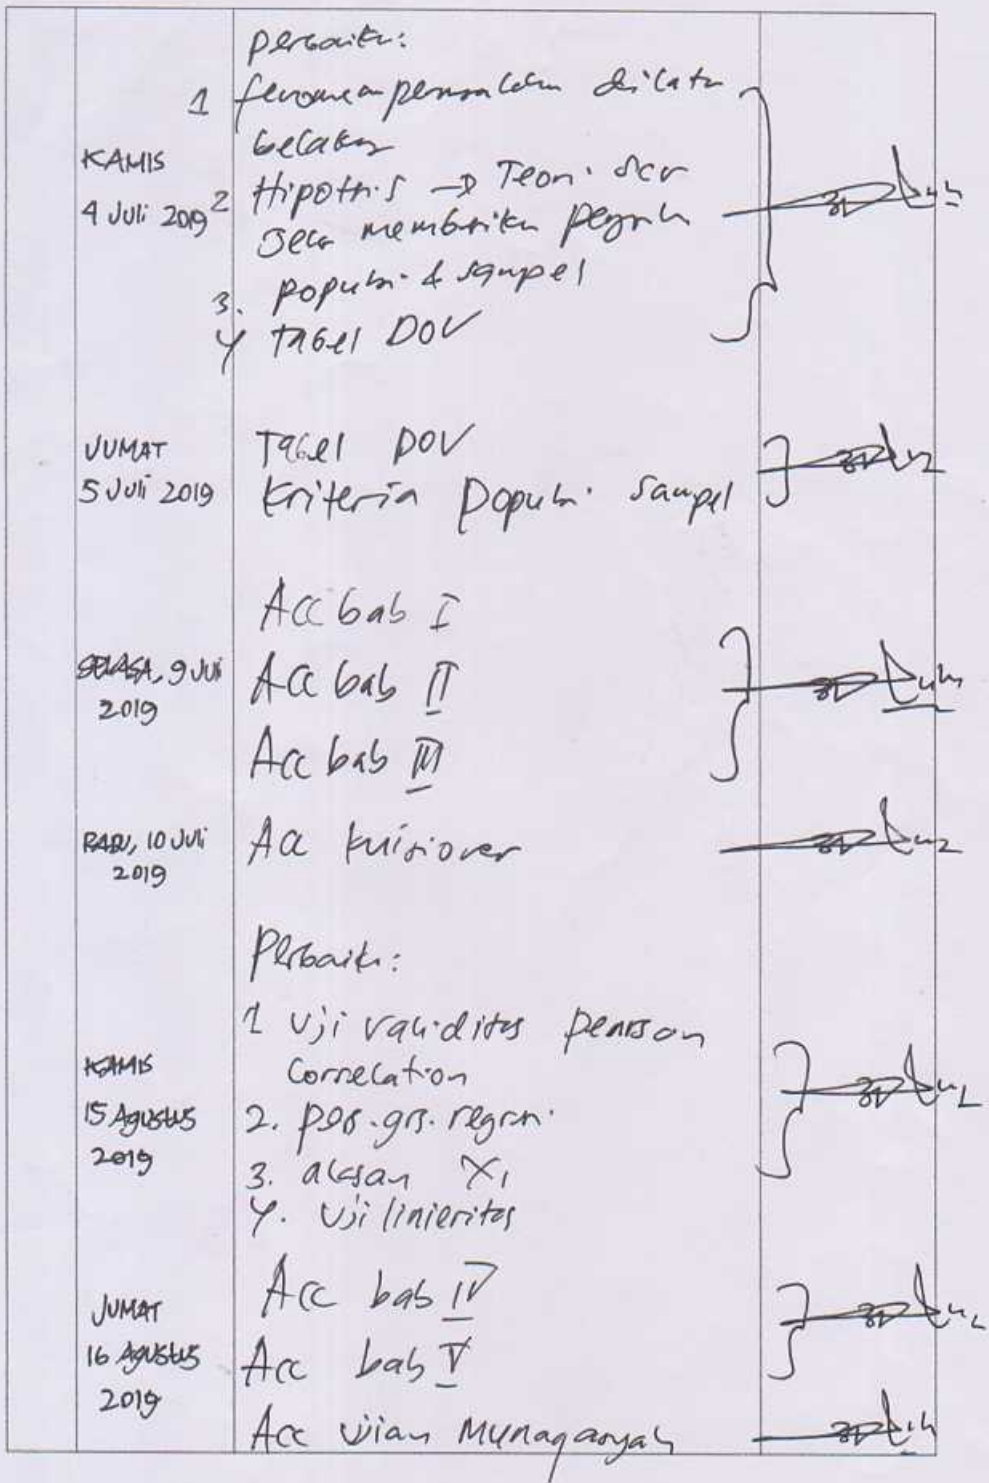 Perbaiki:
1 fenomena permasalahan di latar
belakang
KAMIS
4 Juli 2019
2 Hipotesis → Teori scr
memberikan
3. populasi & sampel
4 Tabel DOV
JUMAT
5 Juli 2019
Tabel DOV
Kriteria Populasi Sampel
SELASA, 9 Juli
2019
Acc bab I
Acc bab II
Acc bab III
RABU, 10 Juli
2019
Acc kuisioner
Perbaiki:
KAMIS
15 Agustus
2019
1 Uji validitas pearson
correlation
2. regresi
3. alasan X1
4. Uji linieritas
JUMAT
16 Agustus
2019
Acc bab IV
Acc bab V
Acc ujian Munaqasyah